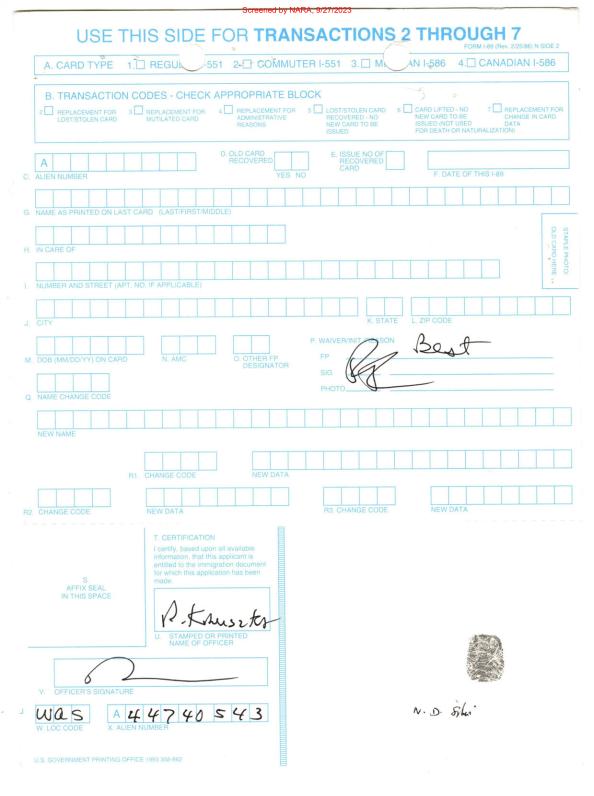 Screened by NARA, 9/27/2023
USE THIS SIDE FOR TRANSACTIONS 2 THROUGH 7
FORM I-89 (Rev. 2/25/86) N SIDE 2
A. CARD TYPE 1. REGU -551 2. COMMUTER I-551 3. M AN I-586 4. CANADIAN I-586
B. TRANSACTION CODES - CHECK APPROPRIATE BLOCK
2 REPLACEMENT FOR LOST/STOLEN CARD
3 REPLACEMENT FOR MUTILATED CARD
4 REPLACEMENT FOR ADMINISTRATIVE REASONS
5 LOST/STOLEN CARD RECOVERED - NO NEW CARD TO BE ISSUED
6 CARD LIFTED - NO NEW CARD TO BE ISSUED (NOT USED FOR DEATH OR NATURALIZATION)
7 REPLACEMENT FOR CHANGE IN CARD DATA
A
C. ALIEN NUMBER
D. OLD CARD RECOVERED
YES NO
E. ISSUE NO OF RECOVERED CARD
F. DATE OF THIS I-89
G. NAME AS PRINTED ON LAST CARD (LAST/FIRST/MIDDLE)
H. IN CARE OF
STAPLE PHOTO
OLD CARD HERE
I. NUMBER AND STREET (APT. NO. IF APPLICABLE)
J. CITY
K. STATE
L. ZIP CODE
M. DOB (MM/DD/YY) ON CARD
N. AMC
O. OTHER FP DESIGNATOR
P. WAIVER/INIT. REASON
Best
FP
SIG
PHOTO
Q. NAME CHANGE CODE
NEW NAME
R1. CHANGE CODE
NEW DATA
R2. CHANGE CODE
NEW DATA
R3. CHANGE CODE
NEW DATA
S.
AFFIX SEAL
IN THIS SPACE
T. CERTIFICATION
I certify, based upon all available
information, that this applicant is
entitled to the immigration document
for which this application has been
made.
U. STAMPED OR PRINTED
NAME OF OFFICER
V. OFFICER'S SIGNATURE
WAS
A 44740543
W. LOC CODE
X. ALIEN NUMBER
N. D.
U.S. GOVERNMENT PRINTING OFFICE